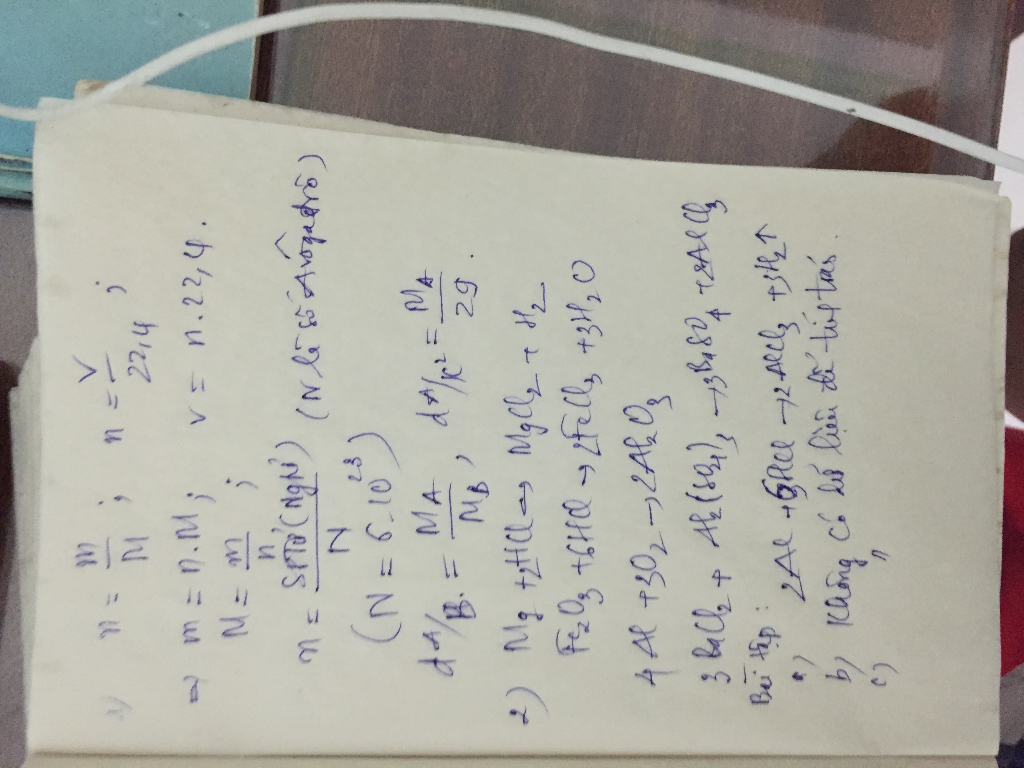 1) n = m/M ; n = V/22,4 ;
⇒ m = n.M ; V = n.22,4.
M = m/n ;
n = SPTử (Ngtử)/N (N là số Avôgađrô)
(N = 6.10²³)
dA/B = MA/MB, dA/K² = MA/29.
2) Mg + 2HCl → MgCl₂ + H₂
Fe₂O₃ + 6HCl → 2FeCl₃ + 3H₂O
4Al + 3O₂ → 2Al₂O₃
3BaCl₂ + Al₂(SO₄)₃ → 3BaSO₄ + 2AlCl₃
Bài tập:
a) 2Al + 6HCl → 2AlCl₃ + 3H₂↑
b) Không có số liệu để tính toán.
c) "